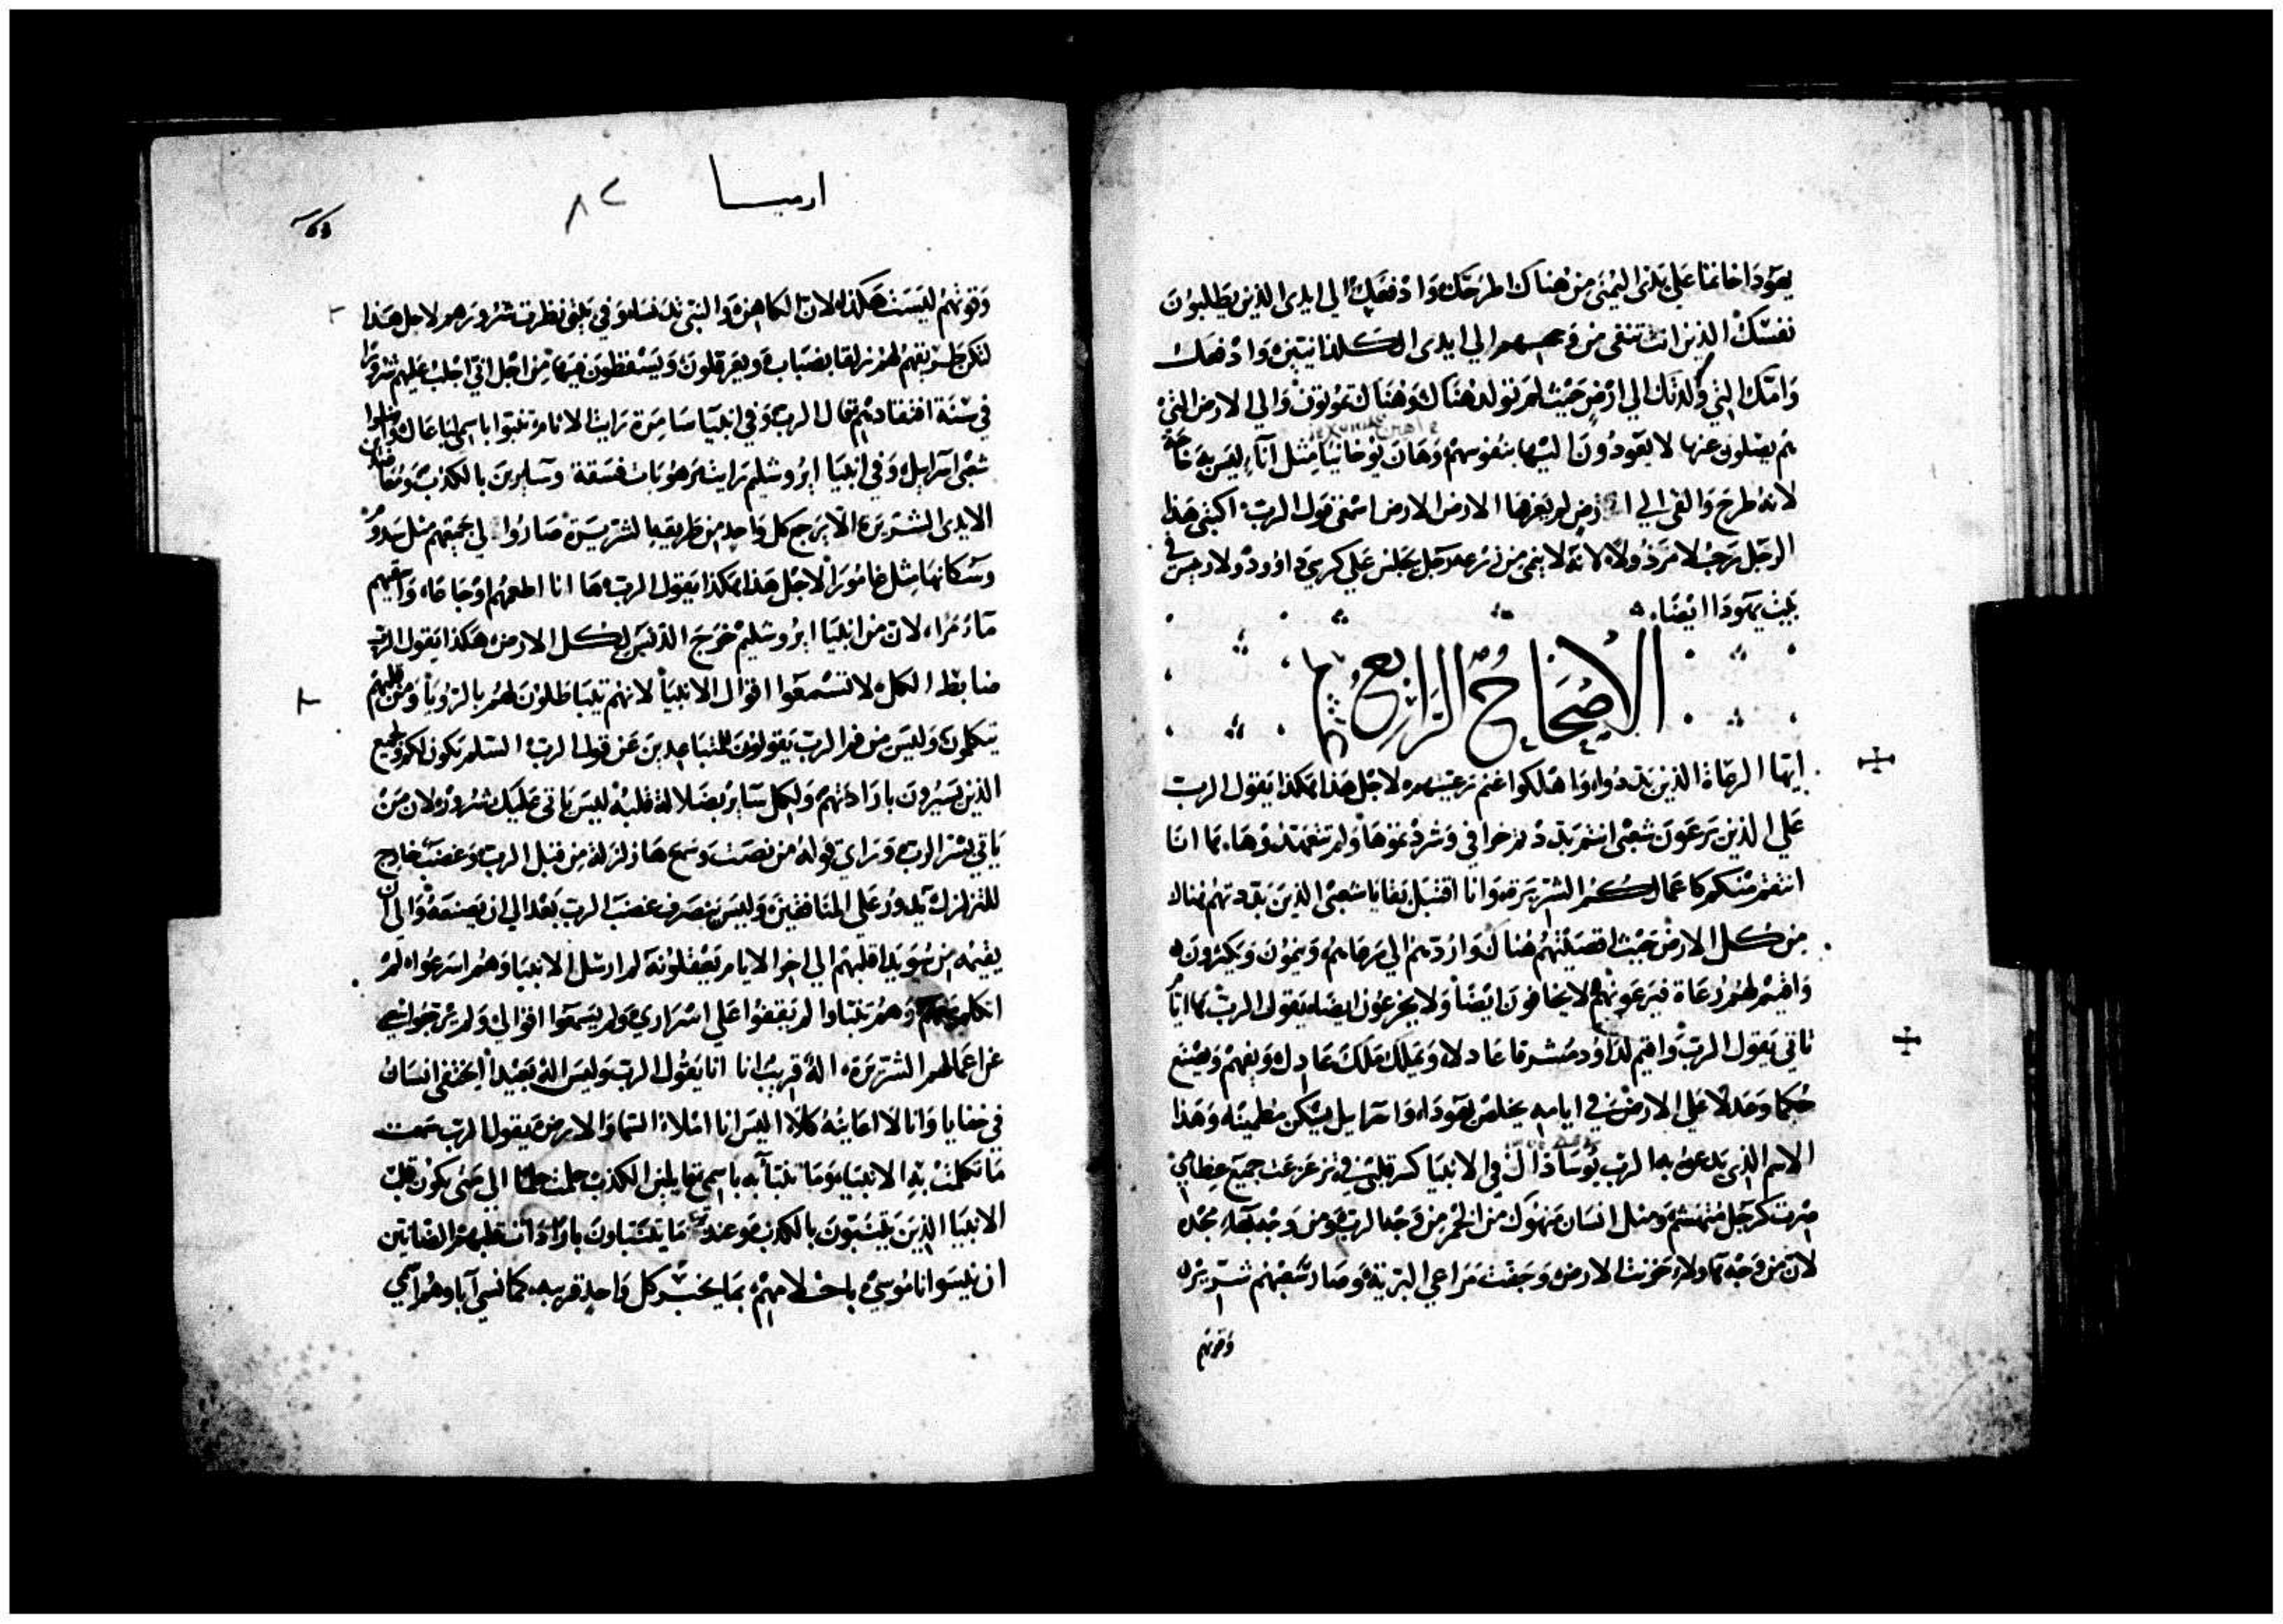 يهودا خاتما علي يدى اليمنى من هناك اطرحك وادفعك الي ايدى الذين يطلبون
نفسك الذين انت تتقى من وجههم الي ايدى الكلدانيين وادفعك
وامك التي ولدتك الي ارض حيث لم تولد هناك وهناك تموتون والي الارض التي
هم يصلون عنها لا يعودون اليها بنفوسهم وهان يوخانيا مثل اناء ليس به حاجة
لانه طرح والقى الي ارض لم يعرفها الارض الارض اسمعى قول الرب اكتبى هذا
الرجل رجلا مرذولا لانه لا ينمى من زرعه رجل يجلس علي كرسي داوود ولا رييس في
بيت يهودا ايضا
الاصحاح الرابع
ايها الرعاة الذين بددوا واهلكوا غنم رعيتهم لاجل هذا هكذا يقول الرب
علي الذين يرعون شعبى انتم بددتم خرافي وشردتموها ولم تتعهدوها ها انا
انتقم منكم كاعمالكم الشريرة وانا اقتبل بقايا شعبى الذين بددتهم هناك
من كل الارض حيث اقصيتهم هناك واردهم الي مرعاهم وينمون ويكثرون
واقيم لهم رعاة فيرعونهم لا يخافون ايضا ولا يجزعون ايضا يقول الرب ها ايام
تاتي يقول الرب واقيم لداود مشرقا عادلا ويملك ملك عادل ويفهم ويصنع
حكما وعدلا علي الارض في ايامه يخلص يهودا واسرايل يسكن مطمينا وهذا
الاسم الذى يدعوه به الرب يوساداك في الانبيا كسر قلبى في تزعزعت جميع عظامي
صرت كرجل منهشم ومثل انسان منهوك من الخمر من وجه الرب ومن وجه بهاء مجده
لان من وجه هاولاء حزنت الارض وجفت مراعي البرية وصار سعيهم شريرا
وقوتهم
ارميا
٨٢
وقوتهم ليست هكذا لان الكاهن والنبي تدنسا وفي بيتى نظرت شرورهم لاجل هذا
لتكن طريقهم لهم زلقا بضباب ويعرقلون ويسقطون فيها من اجل اني اجلب عليهم شرورا
في سنة افتقادهم قال الرب وفي انبيا سامرة رايت الاثام تنبوا باسم باعال واضلوا
شعبى اسرايل وفي انبيا ايروشليم رايت مرهوبات فسقة وسايرين بالكذب
الايدى الشريرة الا يرجع كل واحد من طريقه الشريرة صاروا لي جميعهم مثل سدوم
وسكانها مثل غامورا لاجل هذا هكذا يقول الرب ها انا اطعمهم اوجاعا واسقيهم
ماء مرا لان من انبيا ايروشليم خرج الدنس لكل الارض هكذا يقول الرب
ضابط الكل لا تسمعوا اقوال الانبيا لانهم يتباطلون لهم بالرويا ومن قلبهم
يتكلمون وليس من فم الرب يقولون للمتباعدين عن قول الرب السلم يكون لكم ولجميع
الذين يسيرون بارادتهم ولكل ساير بضلالة قلبه ليس ياتي عليك شرور لان من
ياتي بسر الرب وراى قوله من نصت وسمع ها زلزلة من قبل الرب وغضب خارج
للتزلزل يدور علي المنافقين وليس ينصرف غضب الرب بعد الي ان يصنعه والي ان
يقيمه من سويدا قلبهم الي اخر الايام يعقلونه لم ارسل الانبيا وهم اسرعوا لم
اتكلم وهم تنباوا لم يقفوا علي اسراري ولم يسمعوا اقوالي
عن اعمالهم الشريرة اله قريب انا انا يقول الرب وليس اله بعيدا ايختفى انسان
في خفايا وانا لا اعاينه كلا اليس انا املاء السما والارض يقول الرب سمعت
ما تكلمت به الانبيا وما تنبا به باسمي قايلين الكذب حلمت حلما الي متى يكون قلب
الانبيا الذين يتنبون بالكذب وعند ما يتنباون بارادات قلبهم الظانين
ان ينسوا ناموسي باحلامهم بما يخبر كل واحد قريبه كما نسي اباوهم اسمي